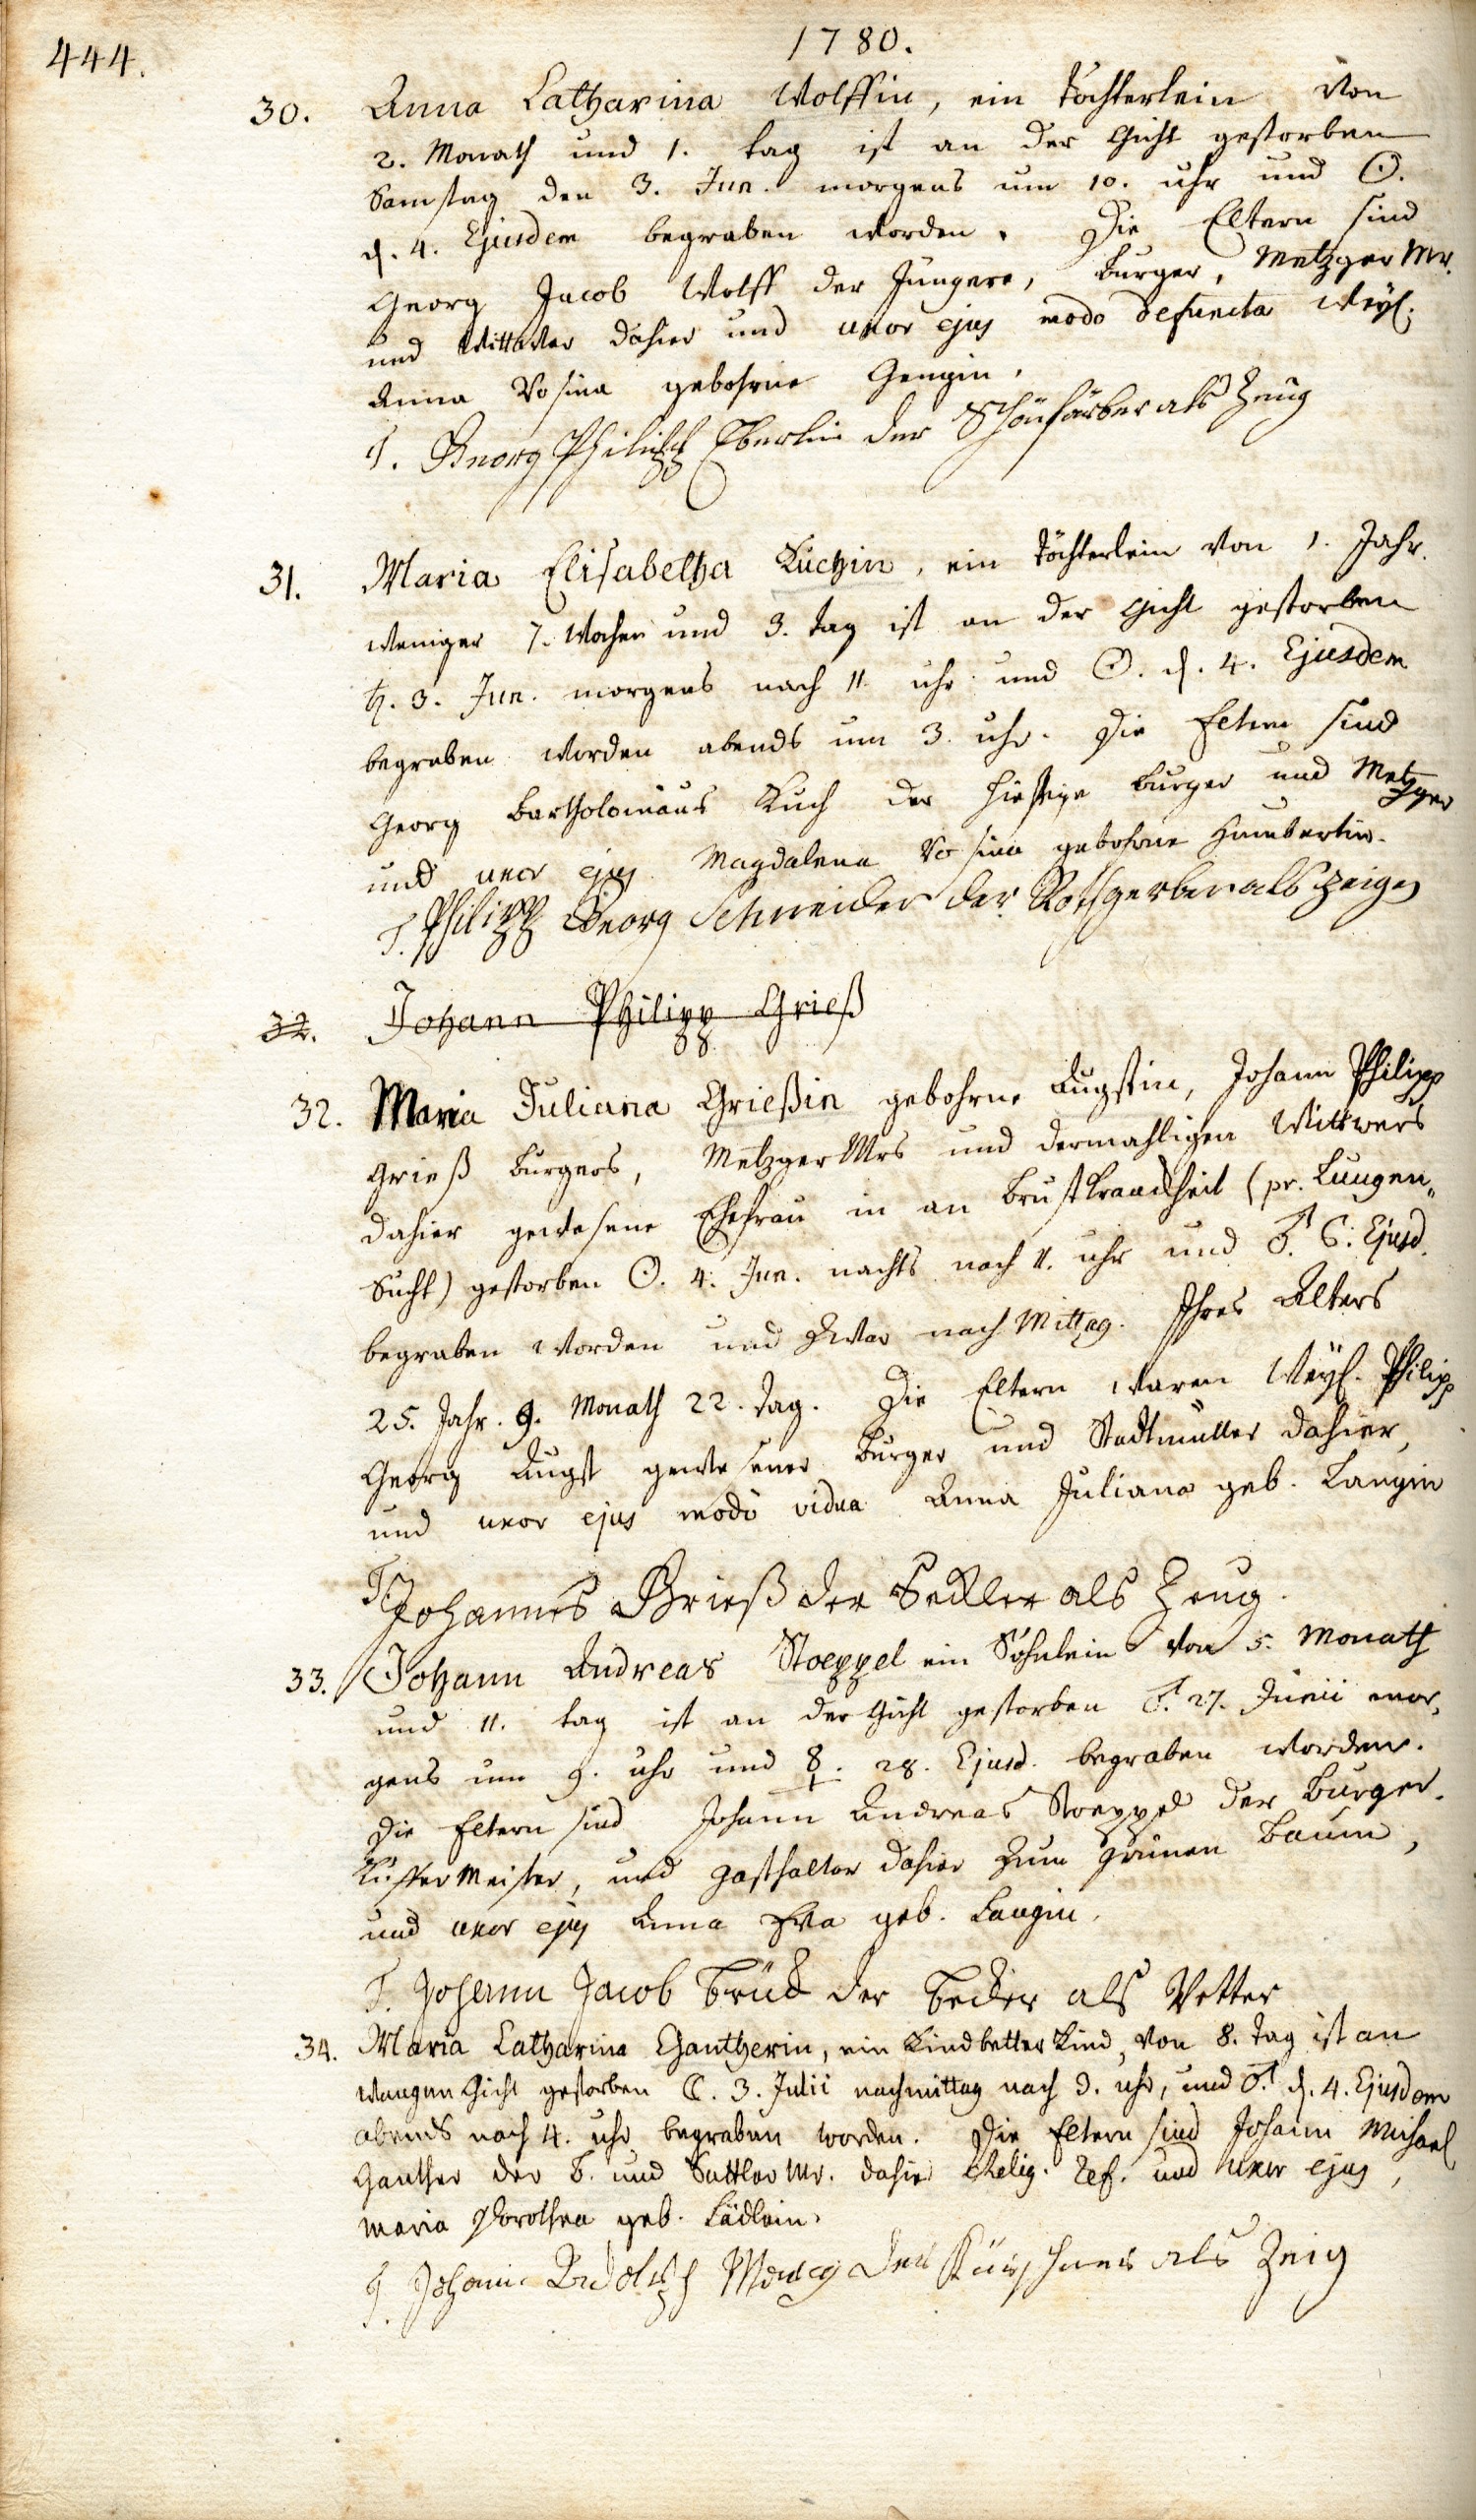 444.
1780.
30. Anna Catharina Wolffin, ein Töchterlein von
2. Monath und 1. tag ist an der Gicht gestorben
Samstag den 3. Jun. morgens um 10. uhr und ☉.
d. 4. Ejusdem begraben worden. Die Eltern sind
Georg Jacob Wolff der Jüngere, burger, Metzger Mr.
und Wittwer dahier und uxor ejus modo defuncta Weyl.
Anna Rosina gebohrne Gengin.
T. Georg Philipp Eberlin der Schönfärber als Zeug
31. Maria Elisabetha Kuchin, ein Töchterlein von 1. Jahr.
weniger 7. Wochen und 3. tag ist an der Gicht gestorben
♄. 3. Jun. morgens nach 11 uhr und ☉. d. 4. Ejusdem
begraben worden abends um 3. uhr. Die Eltern sind
Georg Bartholomäus Kuch der hiesige burger und Metzger
und uxor ejus Magdalena Rosina gebohrne Humbertin.
T. Philipp Georg Schneider der Rothgerber als zeigen
32. Johann Philipp Grieß
32. Maria Juliana Grießin gebohrne Augstin, Johann Philipp
Grieß burgers, Metzger Mrs und dermahligen Wittwers
dahier gewesene Ehefrau in an Brustkranckheit (pr. Lungen„
Sucht) gestorben ☉. 4. Jun. nachts nach 11. uhr und ♂. 6. Ejusd.
begraben worden und zwar nach Mittag. Ihres Alters
25. Jahr. 9. Monath 22. tag. Die Eltern waren Weyl. Philipp
Georg Augst gewesener burger und Stadtmüller dahier,
und uxor ejus modo vidua Anna Juliana geb. Langin
T. Johannes Grieß der Seckler als Zeug.
33. Johann Andreas Stoeppel ein Söhnlein von 5. Monath
und 11. tag ist an der Gicht gestorben ♂. 27. Junii mor„
gens um 9. uhr und ☿. 28. Ejusd. begraben worden.
Die Eltern sind Johann Andreas Stoeppel der burger.
Küffer Meister, und gasthalter dahier zum grünen Baum,
und uxor ejus Anna Eva geb. Langin.
T. Johann Jacob Brück der Becker als Vetter
34. Maria Catharina Gantherin, ein Kindbetter Kind, von 8. tag ist an
wangen Gicht gestorben ☾. 3. Julii nachmittag nach 3. uhr, und ♂. d. 4. Ejusdem
abends nach 4. uhr begraben worden. Die Eltern sind Johann Michael
Ganther der B. und Sattler Mr. dahier Relig. Ref. und uxor ejus,
Maria Dorothea geb. Lädlein.
T. Johann Rudolph der Kürschner als Zeig